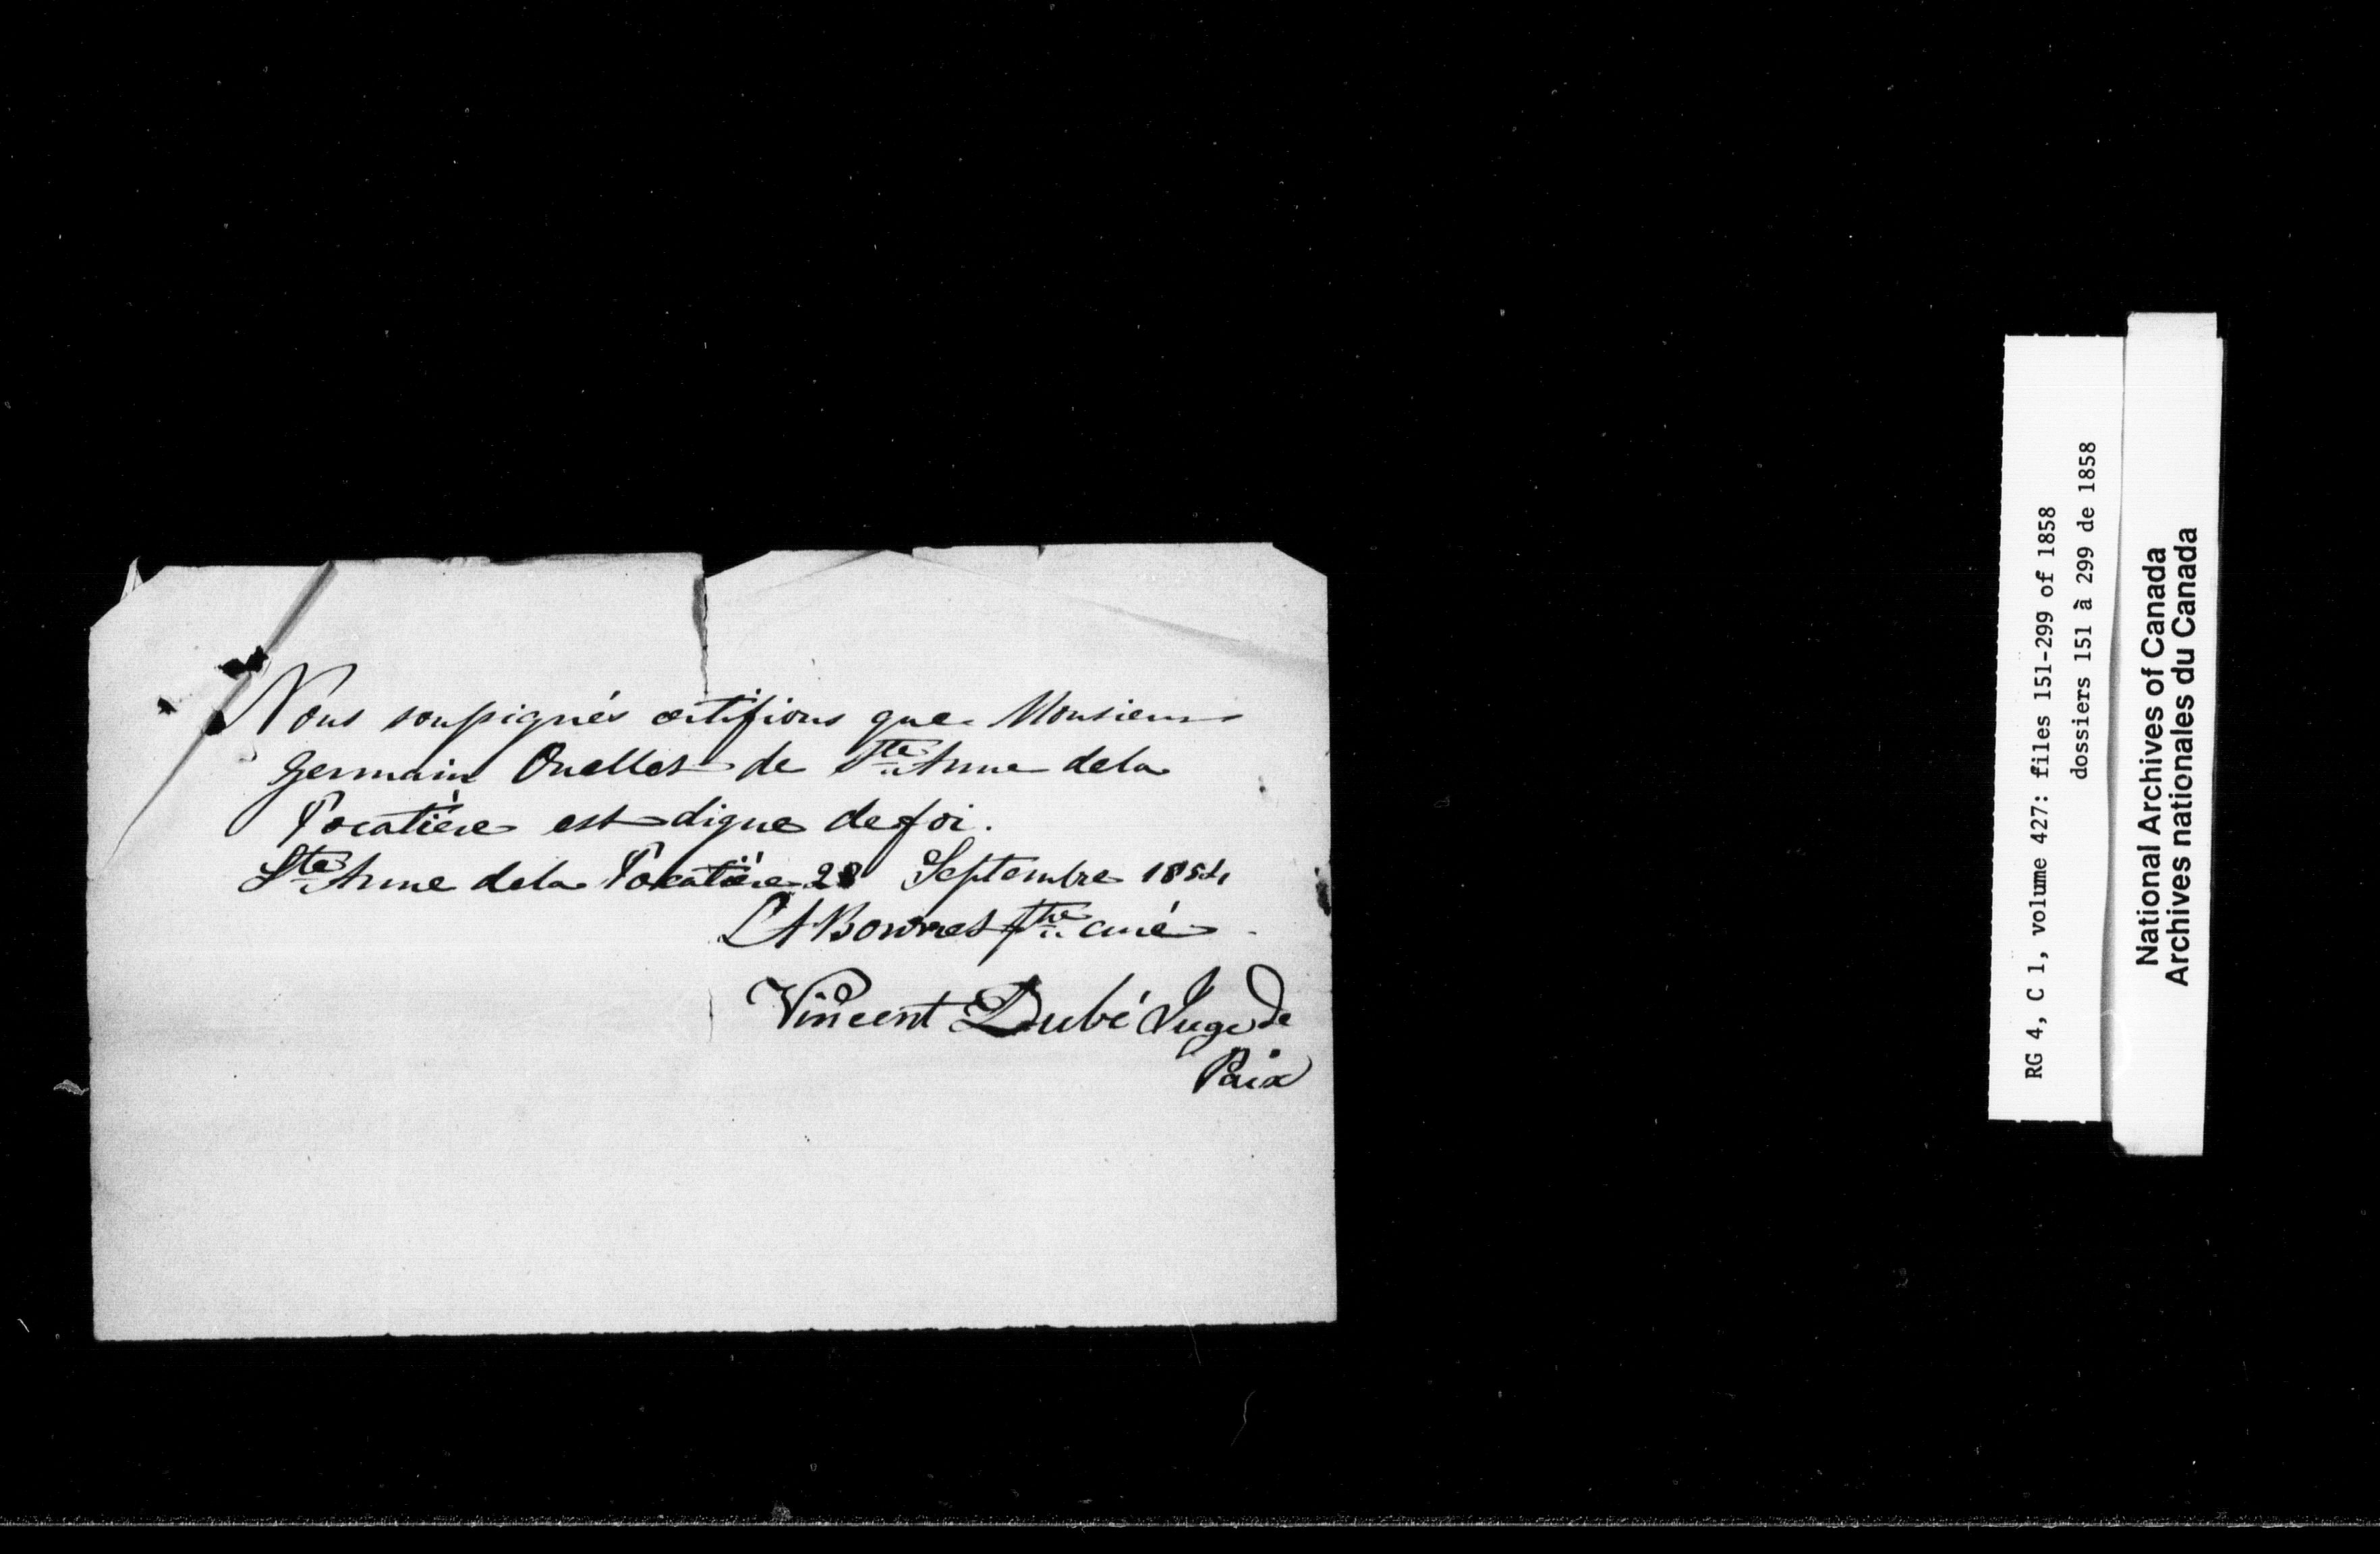 Nous soussignés certifions que Monsieur
Germain Ouellet de Ste Anne dela
Pocatière est digne de foi.
Ste Anne dela Pocatière 28 Septembre 1854
Ptre curé
Vincent Dubé Juge de
Paix
RG 4, C 1, volume 427: files 151-299 of 1858
dossiers 151 à 299 de 1858
National Archives of Canada
Archives nationales du Canada